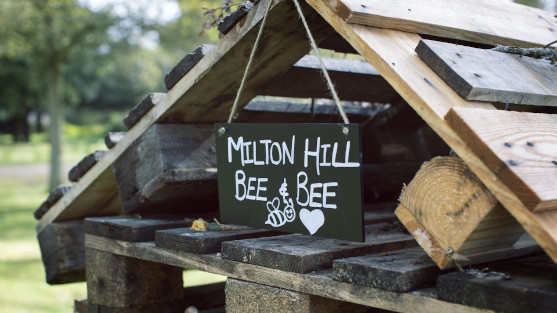 MILTON HILL
BEE & BEE